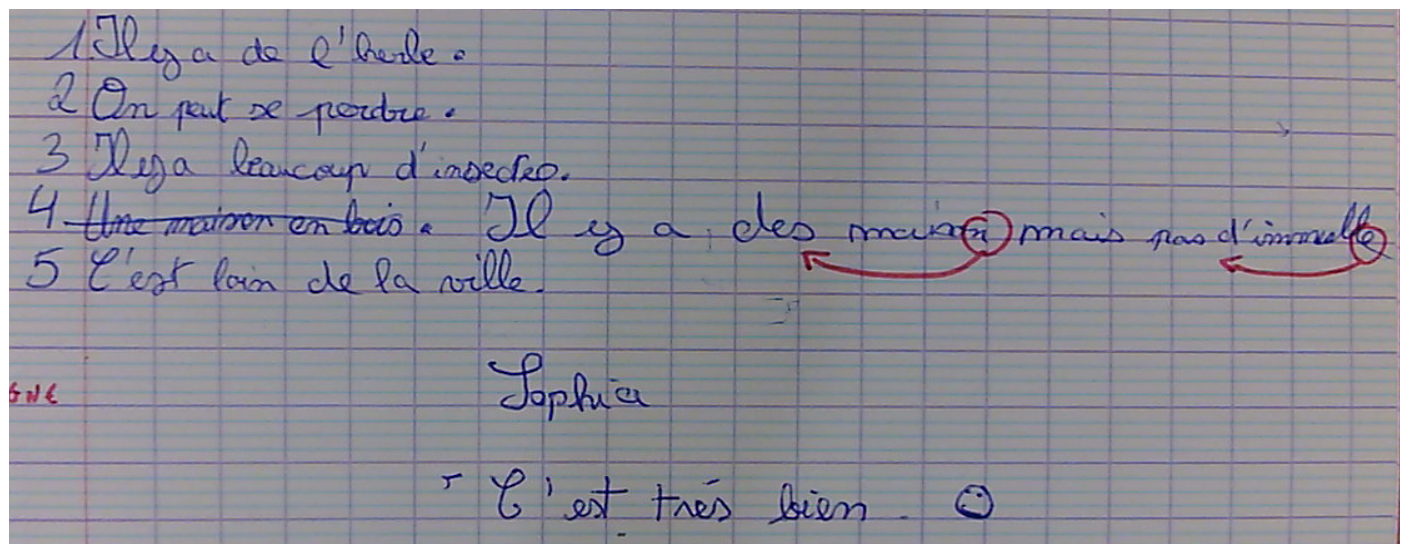 1 Il y a de l'herbe.
2 On peut se perdre.
3 Il y a beaucoup d'insectes.
4 Une maison en bois. Il y a des maison mais pas d'immeuble
5 C'est loin de la ville.
GNE
Sophia
C'est très bien.